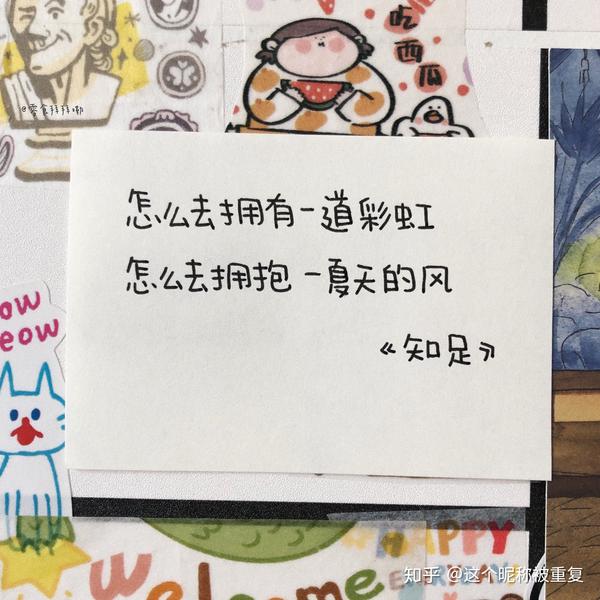 吃西瓜
@零食拜拜嘞
怎么去拥有一道彩虹
怎么去拥抱一夏天的风
《知足》
ow
eow
HAPPY
Welcome
知乎 @这个昵称被重复